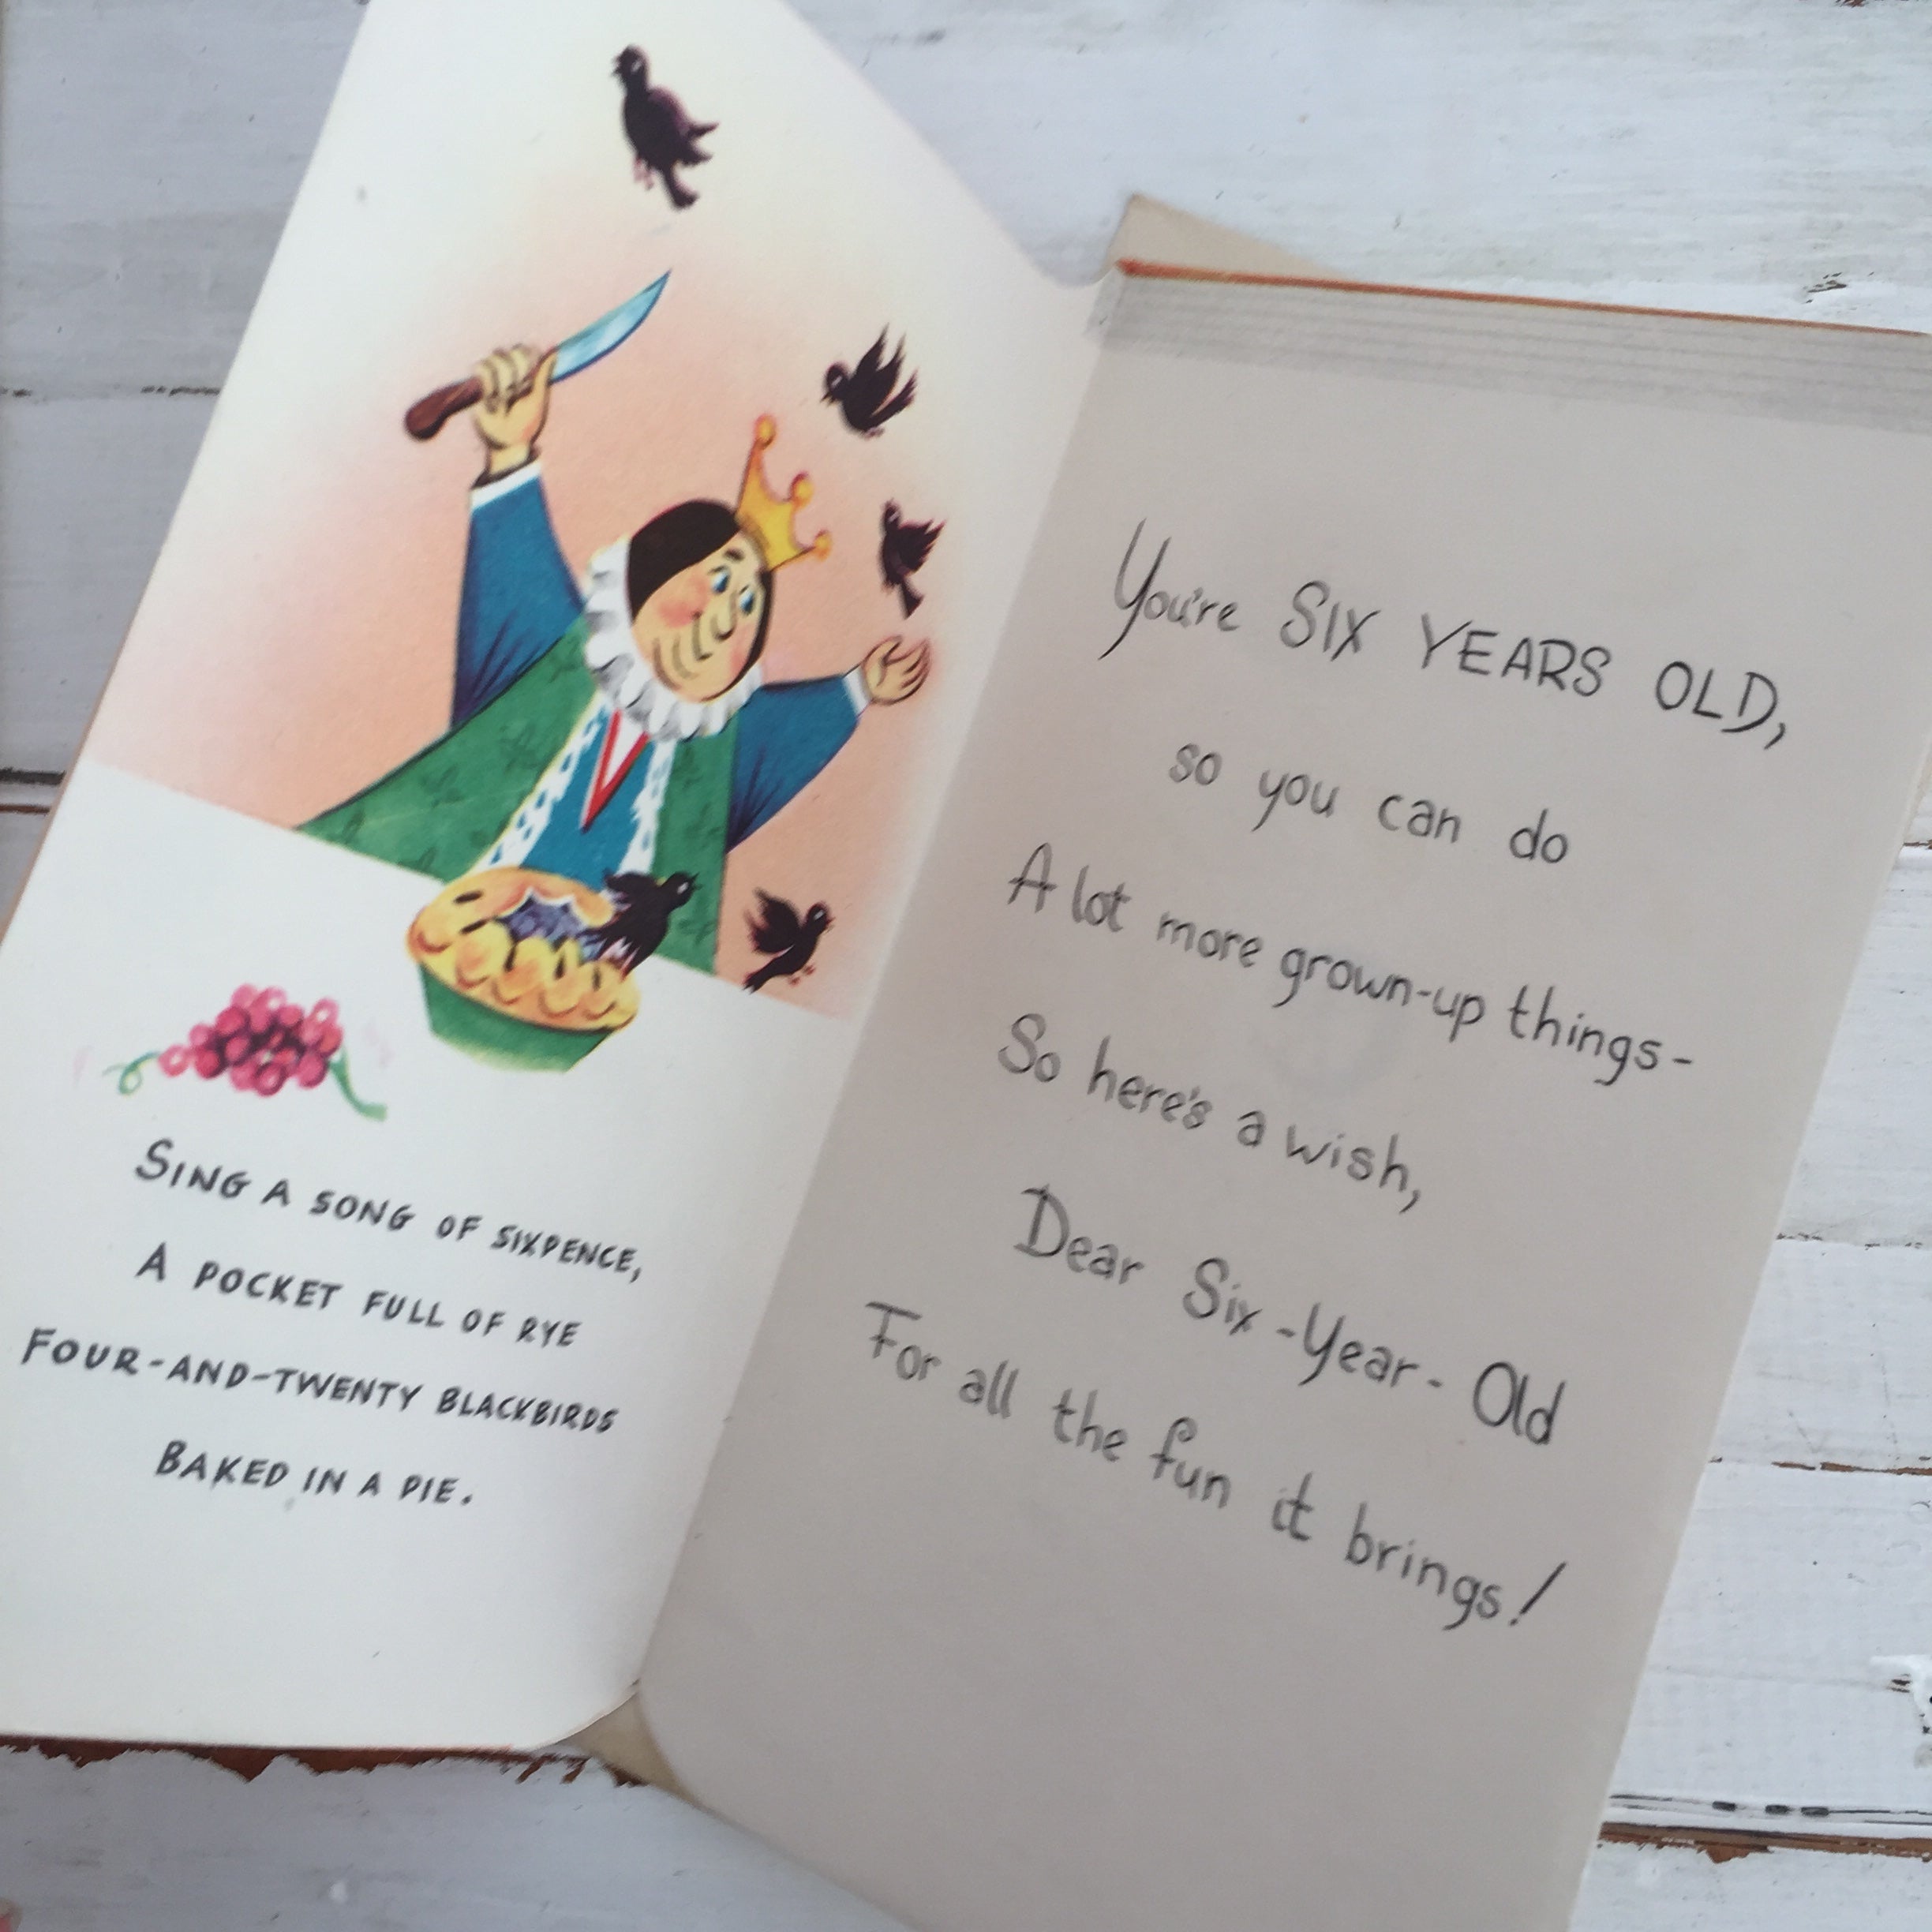 SING A SONG OF SIXPENCE,
A POCKET FULL OF RYE
FOUR-AND-TWENTY BLACKBIRDS
BAKED IN A PIE.
You're SIX YEARS OLD,
so you can do
A lot more grown-up things-
So here's a wish,
Dear Six-Year-Old
For all the fun it brings!